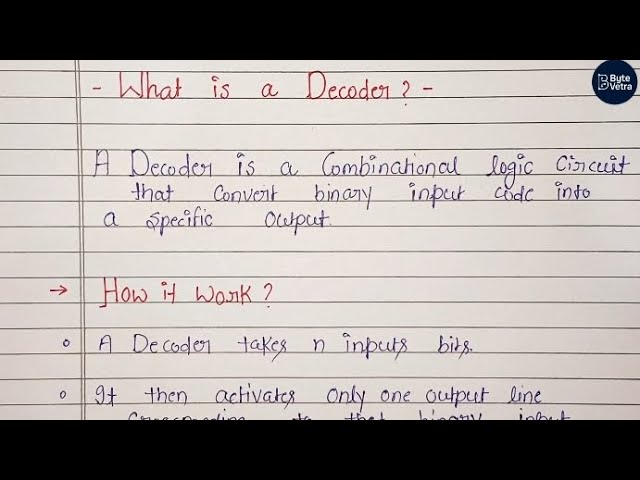 Byte
Vetra
- What is a Decoder? -
A Decoder is a Combinational logic Circuit
that convert binary input code into
a specific output.
→ How it work?
A Decoder takes n inputs bits.
It then activates only one output line
Corresponding to that binary input